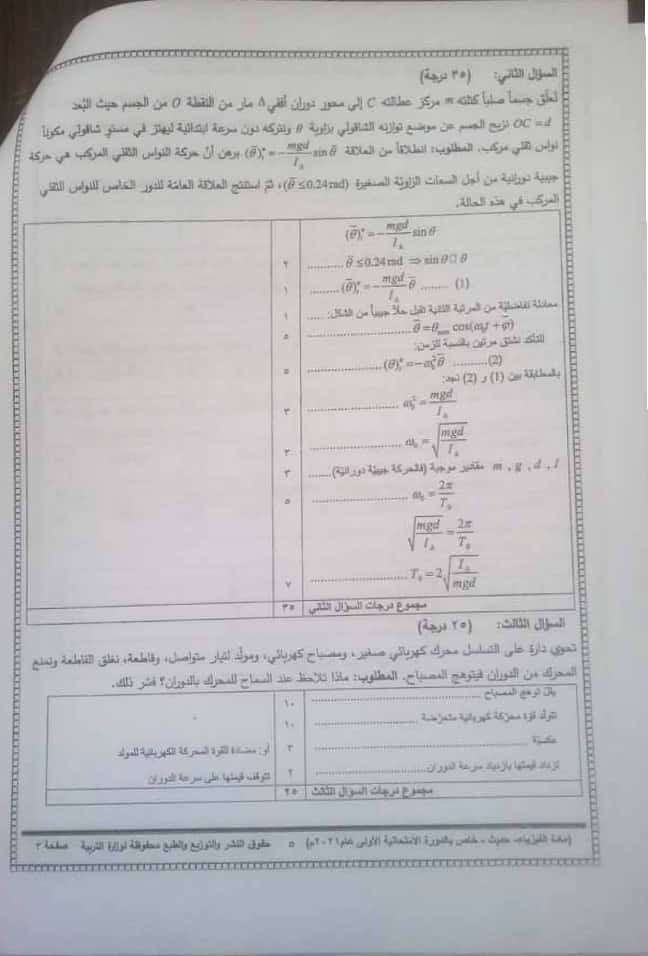 السؤال الثاني: (٣٥ درجة)
نعلّق جسماً صلباً كتلته m مركز عطالته C إلى محور دوران أفقي Δ مار من النقطة O من الجسم حيث البُعد
OC = d نزيح الجسم عن موضع توازنه الشاقولي بزاوية θ ونتركه دون سرعة ابتدائية ليهتز في مستوٍ شاقولي مكوناً
نواس ثقلي مركب. المطلوب: انطلاقاً من العلاقة (θ̄)''ₜ = −(mgd/I_Δ) sin θ̄ برهن أنّ حركة النواس الثقلي المركب هي حركة
جيبية دورانية من أجل السعات الزاويّة الصغيرة (θ̄ ≤ 0.24 rad)، ثمّ استنتج العلاقة العامّة للدور الخاص للنواس الثقلي
المركب في هذه الحالة.
(θ̄)''ₜ = −(mgd/I_Δ) sin θ
θ̄ ≤ 0.24 rad ⇒ sin θ □ θ .......... ٢
(θ̄)''ₜ = −(mgd/I_Δ) θ̄ ........ (1) ........ ١
معادلة تفاضليّة من المرتبة الثانية تقبل حلاً جيبياً من الشكل: ..... ١
θ̄ = θ_max cos(ω₀t + φ̄) .................... ٥
للتأكد نشتق مرتين بالنسبة للزمن:
(θ)''ₜ = −ω₀² θ̄ .......... (2) .................... ٥
بالمطابقة بين (1) و (2) نجد:
ω₀² = mgd/I_Δ .................... ٣
ω₀ = √(mgd/I_Δ) .................... ٣
m , g , d , I مقادير موجبة (فالحركة جيبيّة دورانيّة)...... ٣
ω₀ = 2π/T₀ .................... ٥
√(mgd/I_Δ) = 2π/T₀
T₀ = 2√(I_Δ/mgd) .................... ٧
مجموع درجات السؤال الثاني ٣٥
السؤال الثالث: (٢٥ درجة)
تحوي دارة على التسلسل محرك كهربائي صغير، ومصباح كهربائي، ومولّد لتيار متواصل، وقاطعة، نغلق القاطعة ونمنع
المحرك من الدوران فيتوهج المصباح. المطلوب: ماذا تلاحظ عند السماح للمحرك بالدوران؟ فسّر ذلك.
يقل توهج المصباح .................... ١٠
تتولّد قوة محرّكة كهربائية متحرّضة .................... ١٠
عكسيّة .................... ٣ أو: مضادة للقوة المحركة الكهربائية للمولد
تزداد قيمتها بازدياد سرعة الدوران .................... ٢ تتوقف قيمتها على سرعة الدوران
مجموع درجات السؤال الثالث ٢٥
(مادة الفيزياء- حديث - خاص بالدورة الامتحانية الأولى عام٢٠٢١م) ٥ حقوق النشر والتوزيع والطبع محفوظة لوزارة التربية صفحة ٢